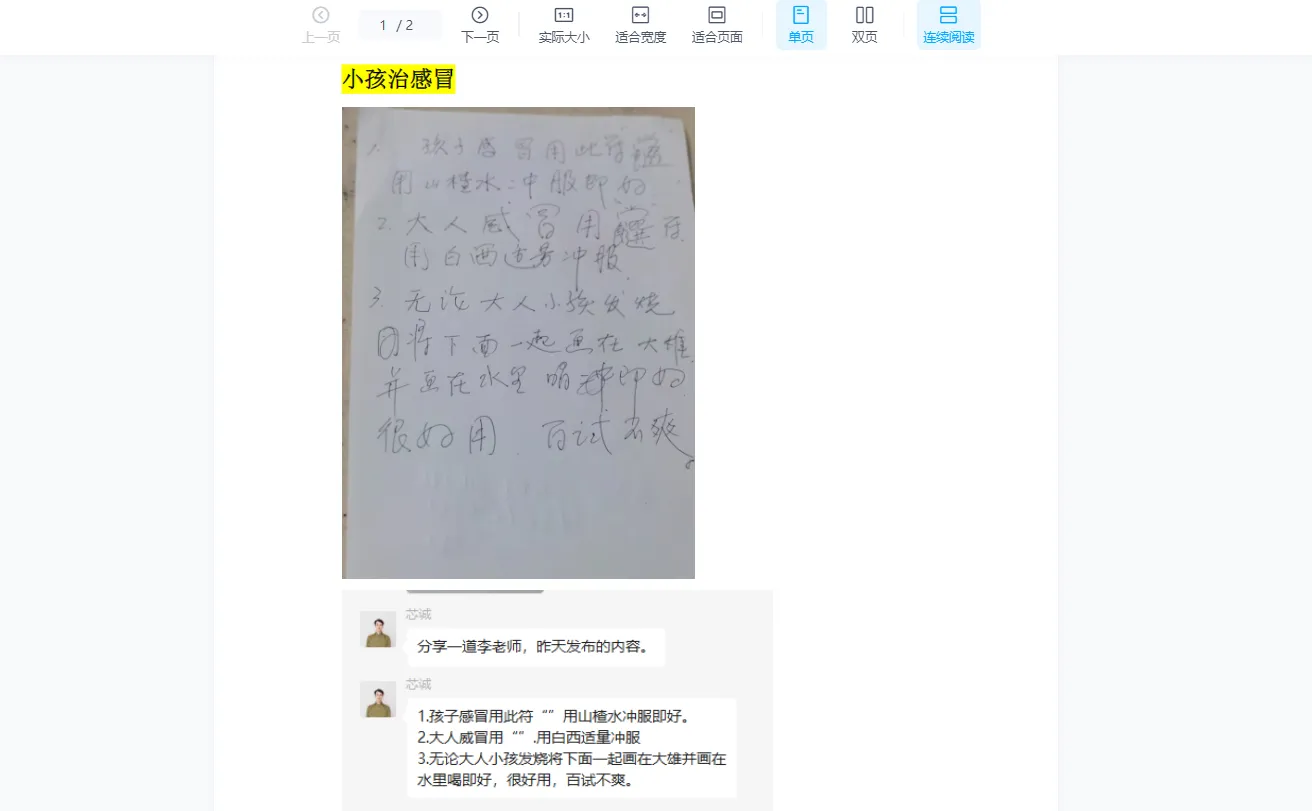 上一页
1 / 2
下一页
1:1
实际大小
适合宽度
适合页面
单页
双页
连续阅读
小孩治感冒
1. 孩子感冒用此符
用山楂水冲服即好
2. 大人威冒用 符.
用白西适量冲服.
3. 无论大人小孩发烧
将下面一起画在大雄
并画在水里喝掉即好.
很好用 百试不爽。
芯诚
分享一道李老师，昨天发布的内容。
芯诚
1.孩子感冒用此符“”用山楂水冲服即好。
2.大人威冒用“”.用白西适量冲服
3.无论大人小孩发烧将下面一起画在大雄并画在
水里喝即好，很好用，百试不爽。